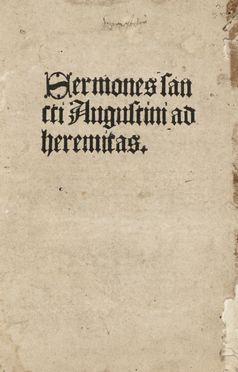 Sermones san
cti Augustini ad
heremitas.